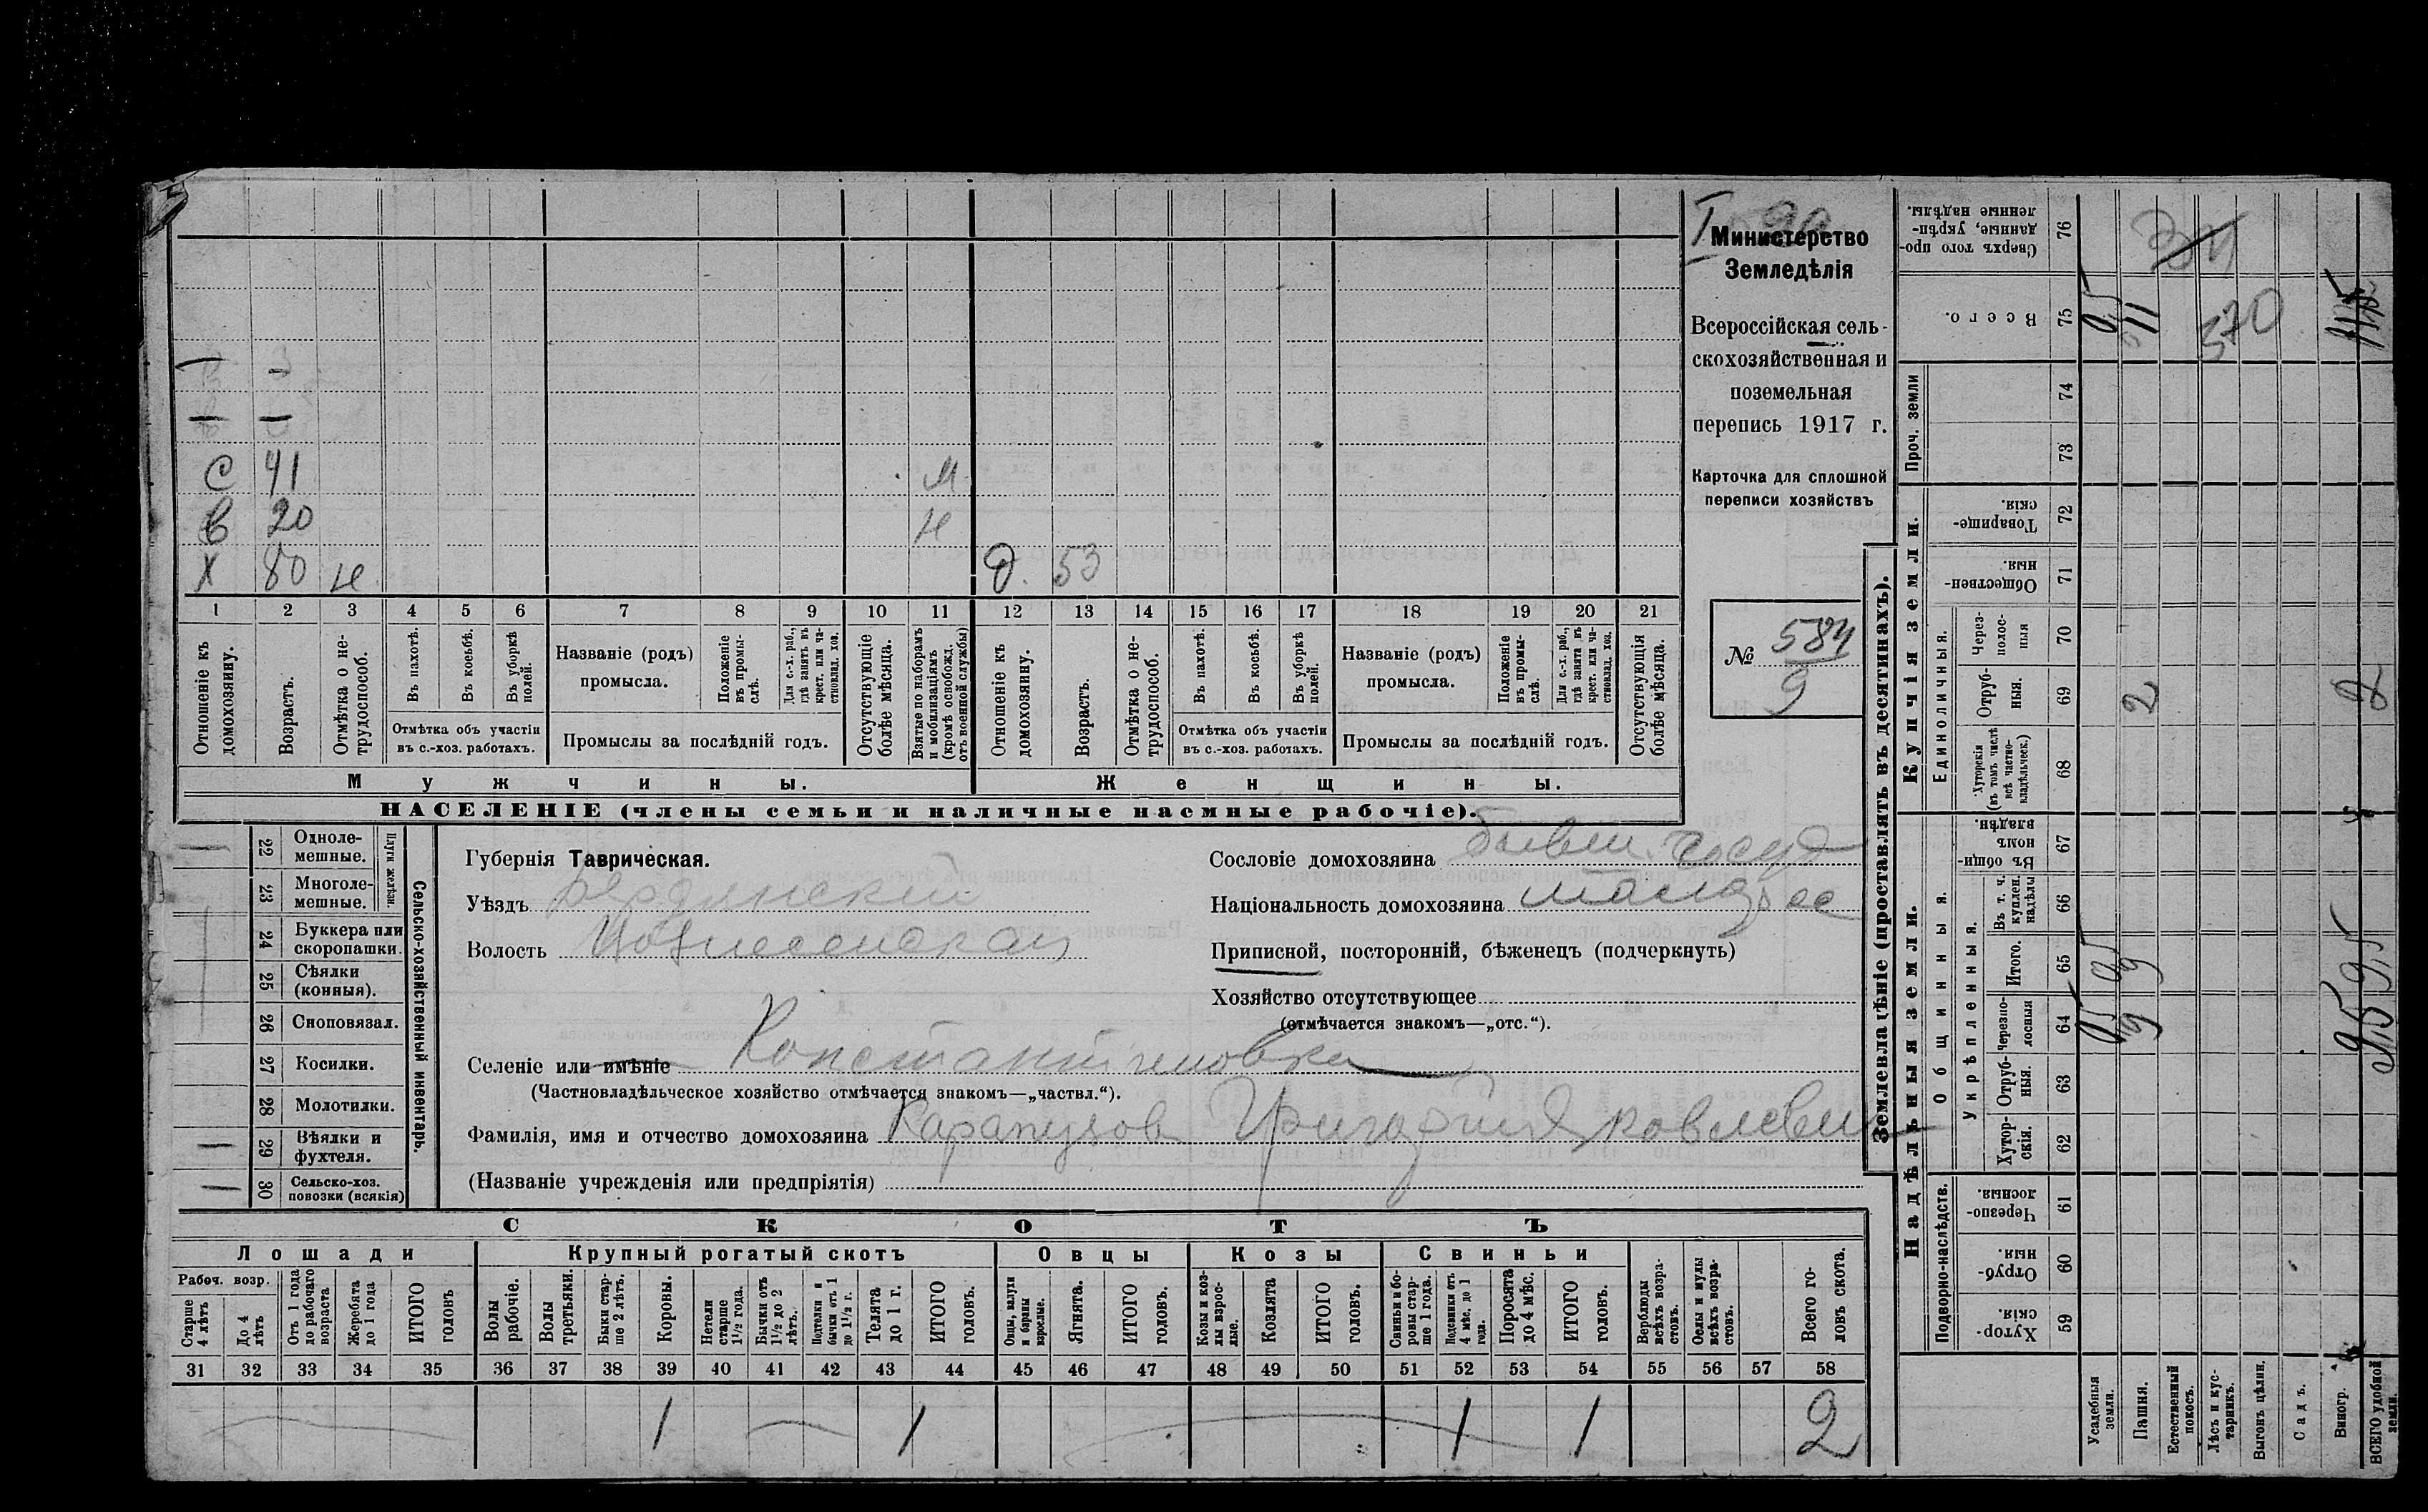 I
Министерство
Земледѣлія
Всероссійская сель-
скохозяйственная и
поземельная
перепись 1917 г.
Карточка для сплошной
переписи хозяйствъ
№ 584
9
— —
— —
С 41 М
В 20 Н
Х 80 Н Ж. 53
1 2 3 4 5 6 7 8 9 10 11 12 13 14 15 16 17 18 19 20 21
Отношеніе къ домохозяину.
Возрастъ.
Отмѣтка о не-трудоспособ.
Въ пахотѣ.
Въ косьбѣ.
Въ уборкѣ полей.
Отмѣтка объ участіи въ с.-хоз. работахъ.
Названіе (родъ) промысла.
Положеніе въ промы-слѣ.
Для с.-х. раб., гдѣ занятъ въ крест. или ча-стновлад. хоз.
Промыслы за послѣдній годъ.
Отсутствующіе болѣе мѣсяца.
Взятые по наборамъ и мобилизаціямъ (кромѣ освобожд. отъ военной службы)
Отношеніе къ домохозяину.
Возрастъ.
Отмѣтка о не-трудоспособ.
Въ пахотѣ.
Въ косьбѣ.
Въ уборкѣ полей.
Отмѣтка объ участіи въ с.-хоз. работахъ.
Названіе (родъ) промысла.
Положеніе въ промы-слѣ.
Для с.-х. раб., гдѣ занята въ крест. или ча-стновлад. хоз.
Промыслы за послѣдній годъ.
Отсутствующія болѣе мѣсяца.
Мужчины. Женщины.
НАСЕЛЕНІЕ (члены семьи и наличные наемные рабочіе).
22 Одноле-мешные.
23 Многоле-мешные.
Плуги желѣзн.
24 Буккера или скоропашки.
25 Сѣялки (конныя).
26 Сноповязал.
27 Косилки.
28 Молотилки.
— 29 Вѣялки и фухтеля.
— 30 Сельско-хоз. повозки (всякія)
Сельско-хозяйственный инвентарь.
Губернія Таврическая.
Уѣздъ Бердянскій
Волость Вознесенская
Сословіе домохозяина бывш. госуд
Національность домохозяина малорос
Приписной, посторонній, бѣженецъ (подчеркнуть)
Хозяйство отсутствующее
(отмѣчается знакомъ—„отс.“).
Селеніе или имѣніе Константиновка
(Частновладѣльческое хозяйство отмѣчается знакомъ—„частвл.“).
Фамилія, имя и отчество домохозяина Карапузов Григорий Яковлевич
(Названіе учрежденія или предпріятія)
СКОТЪ
Лошади Крупный рогатый скотъ Овцы Козы Свиньи
Рабоч. возр.
Старше 4 лѣтъ
До 4 лѣтъ
Отъ 1 года до рабочаго возраста
Жеребята до 1 года
ИТОГО головъ
Волы рабочіе.
Волы третьяки.
Быки стар-ше 2 лѣтъ.
Коровы.
Нетели старше 1½ года.
Бычки отъ 1½ до 2 лѣтъ.
Подтелки и бычки отъ 1 до 1½ г.
Телята до 1 г.
ИТОГО головъ.
Овцы, валухи и бараны взрослые.
Ягнята.
ИТОГО головъ.
Козы и коз-лы взрос-лые.
Козлята
ИТОГО головъ.
Свиньи и бо-ровы стар-ше 1 года.
Подсвинки отъ 4 мѣс. до 1 года.
Поросята до 4 мѣс.
ИТОГО головъ.
Верблюды всѣхъ возра-стовъ.
Ослы и мулы всѣхъ возра-стовъ.
Всего го-ловъ скота.
31 32 33 34 35 36 37 38 39 40 41 42 43 44 45 46 47 48 49 50 51 52 53 54 55 56 57 58
1 1 1 1 2
Землевладѣніе (проставлять въ десятинахъ).
Надѣльныя земли. Купчія земли. Проч. земли
Подворно-наслѣдств.
Общинныя.
Укрѣпленныя.
Единоличныя.
59 Хутор-скія.
60 Отруб-ныя.
61 Черезпо-лосныя.
62 Хутор-скія.
63 Отруб-ныя.
64 Черезпо-лосныя 95 9 9,5
65 Итого. 95 9 9,5
66 Въ т. ч. куплен. надѣлы
67 Въ общин-номъ владѣн.
68 Хуторскія (въ томъ числѣ всѣ частно-владѣльческ.)
69 Отруб-ныя. 2 2
70 Через-полос-ныя
71 Обществен-ныя.
72 Товарище-скія.
73
74
75 Всего. 0,5 11 570 11,5
76 Сверхъ того про-данные, укрѣп-ленные надѣлы.
Усадебныя земли.
Пашня.
Естественный покосъ.
Лѣсъ и кус-тарникъ.
Выгонъ цѣлин.
Садъ.
Виногр.
ВСЕГО удобной земли.